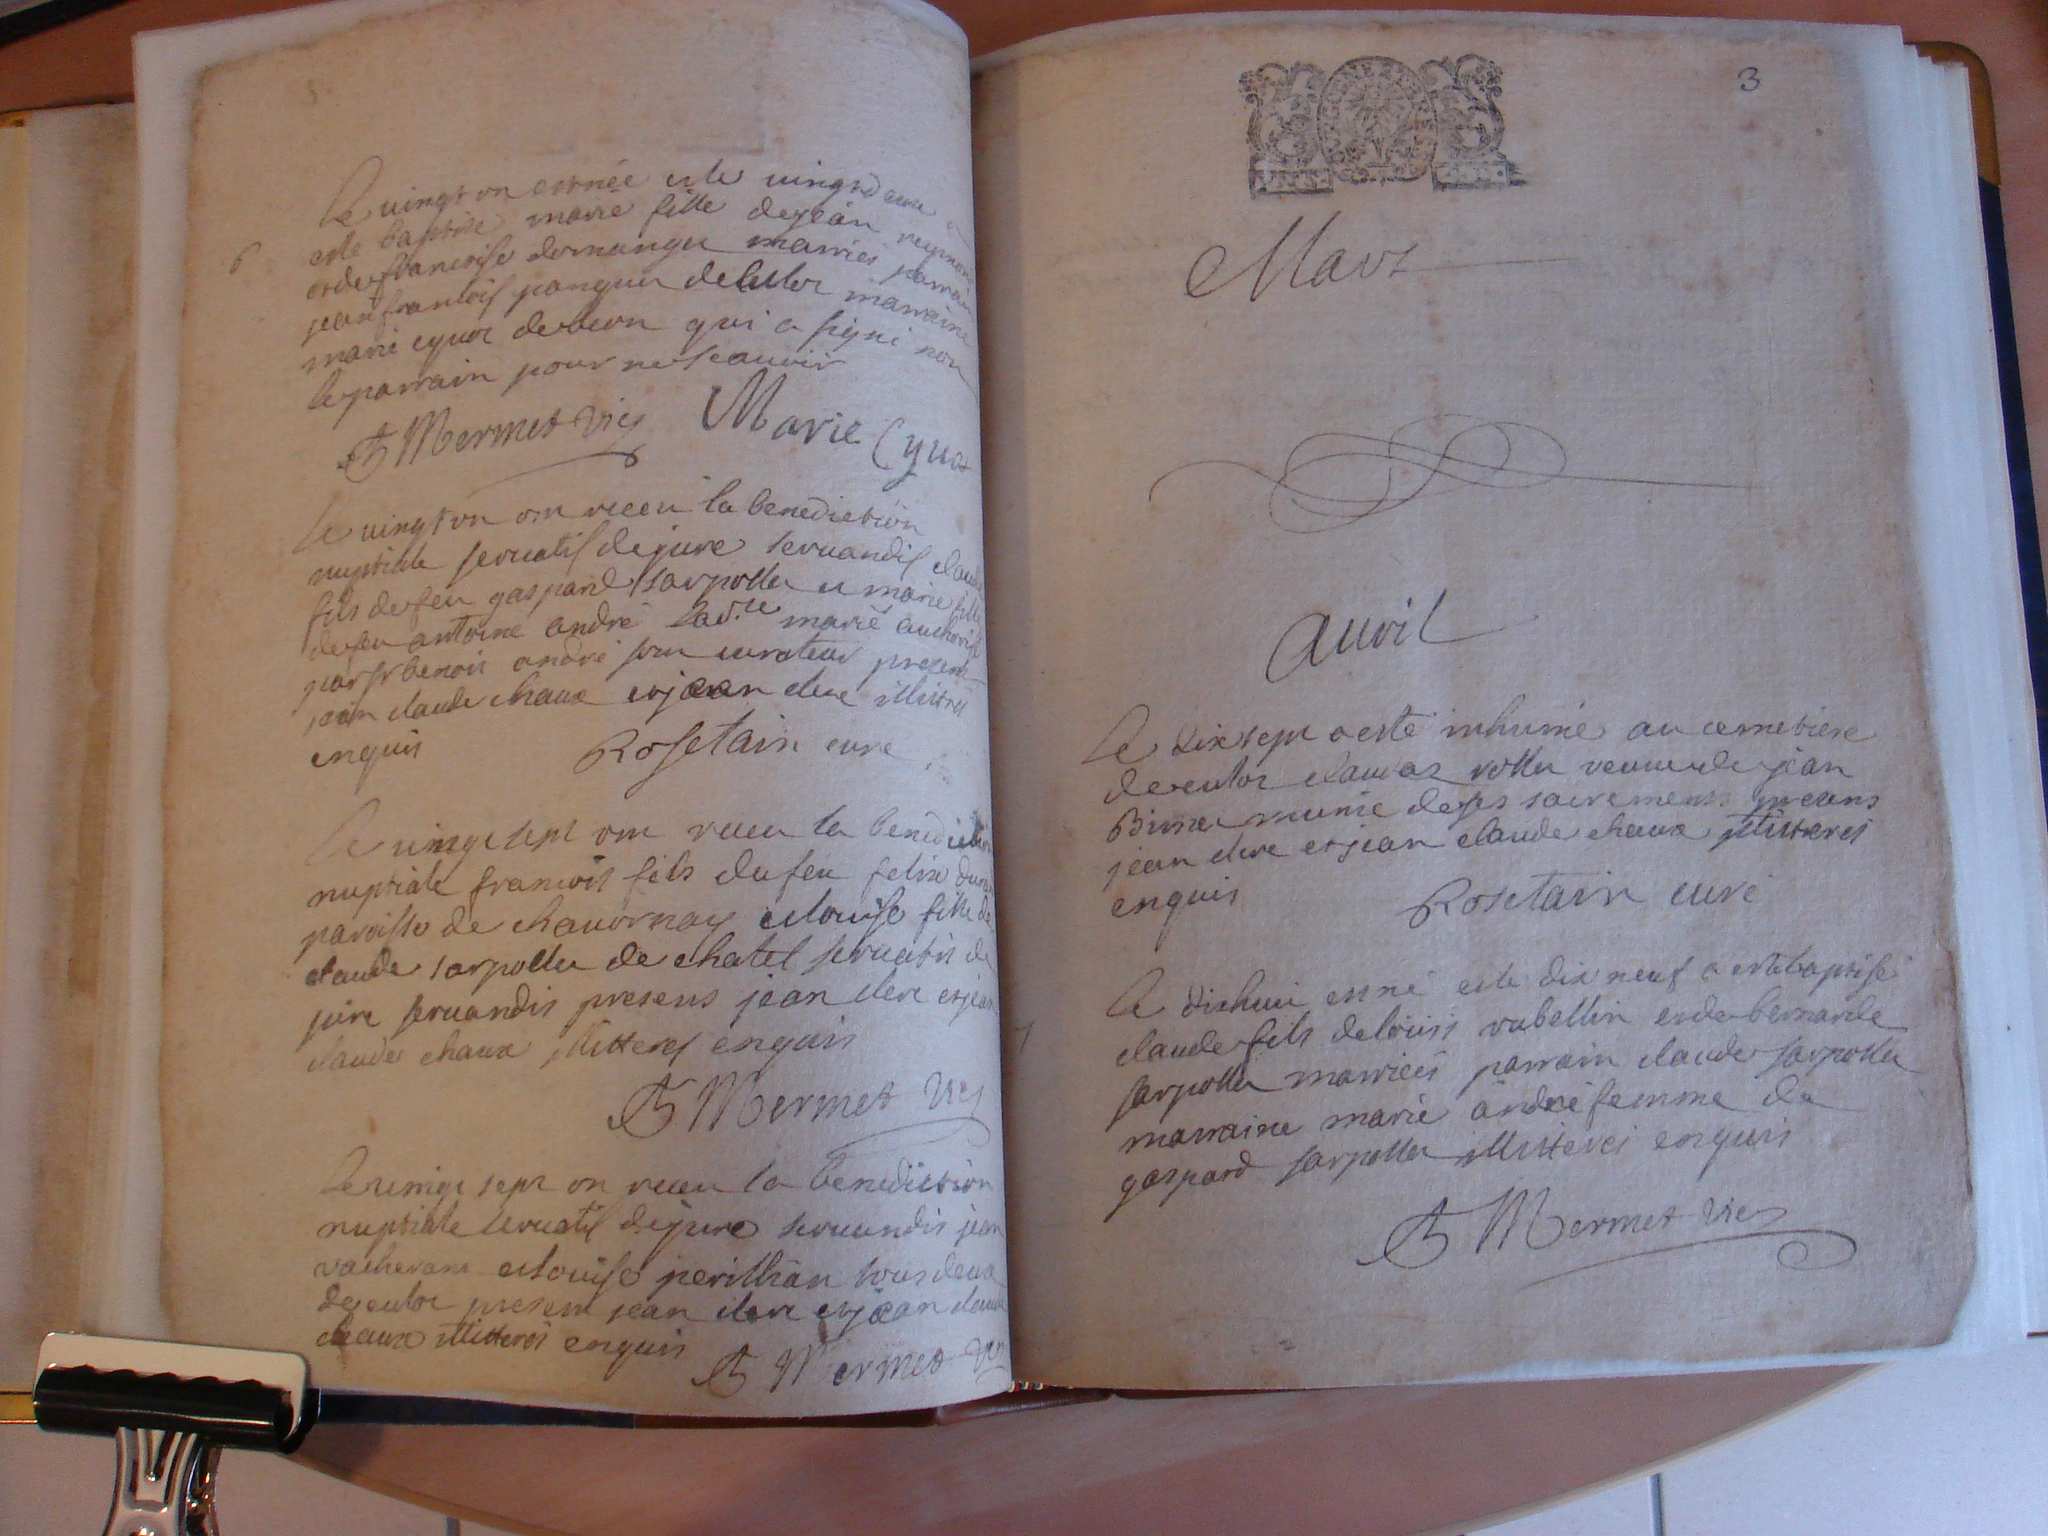 6
Le vingt on estnée et le vingtdeux a
esté baptise marie fille de jean reymon
et de francoise domanger marriés parrain
jean francois de marraine
marie cyuot de qui a signé non
le parrain pour ne scauoir
Mermet vic Marie Cyuot
Le vingt on on receu la benediction
nuptiale seruatis de jure seruandis claude
fils de feu gaspard sarpollet et marie fille
de feu antoine andré marie authorise
par sr benoit andré son curateur presens
jean claude chaux et jean clerc illitteres
enquis Rosetain curé
Le vingt sept on receu la benediction
nuptiale francois fils du feu felix
paroisse de chauornay et louise fille de
claude sarpollet de chatel seruatis de
jure seruandis presens jean clerc et jean
claude chaux illitteres enquis
Mermet vic
Le vingt sept on receu la benediction
nuptiale seruatis de jure seruandis jean
vacherant et louise perillian tous deux
de culoz presens jean clerc et jean claude
chaux illitteres enquis
Mermet vic
3
Mars
auril
Le dix sept a esté inhumé au cemetiere
de culoz claudaz rollet veuue de jean
munie de ses sacremens presens
jean clerc et jean claude chaux illitteres
enquis Rosetain curé
7
Le dixhuit est né et le dix neuf a esté baptisé
claude fils de louis rubellin et de bernarde
sarpollet marriés parrain claude sarpollet
marraine marie andré femme de
gaspard sarpollet illitteres enquis
Mermet vic